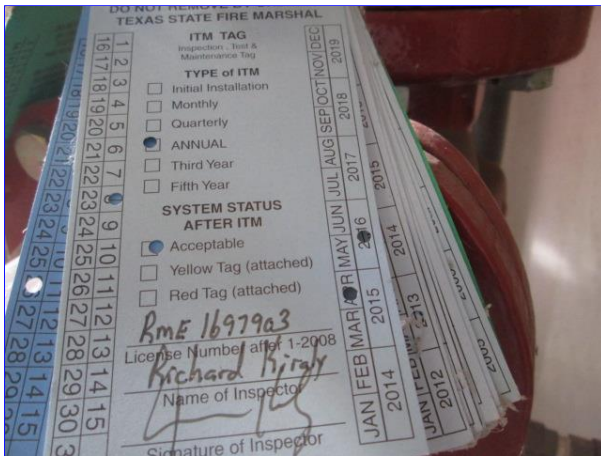 DO NOT REMOVE BY
TEXAS STATE FIRE MARSHAL
ITM TAG
Inspection, Test &
Maintenance Tag
TYPE of ITM
Initial Installation
Monthly
Quarterly
ANNUAL
Third Year
Fifth Year
SYSTEM STATUS
AFTER ITM
Acceptable
Yellow Tag (attached)
Red Tag (attached)
RME 1697903
License Number after 1-2008
Richard Kiraly
Name of Inspector
Signature of Inspector
1 2 3 4 5 6 7 8 9 10 11 12 13 14 15
16 17 18 19 20 21 22 23 24 25 26 27 28 29 30 3
JAN FEB MAR MAY JUN JUL AUG SEP OCT NOV DEC
2014 2015 2016 2017 2018 2019
JAN FEB
2012 2013 2014 2015